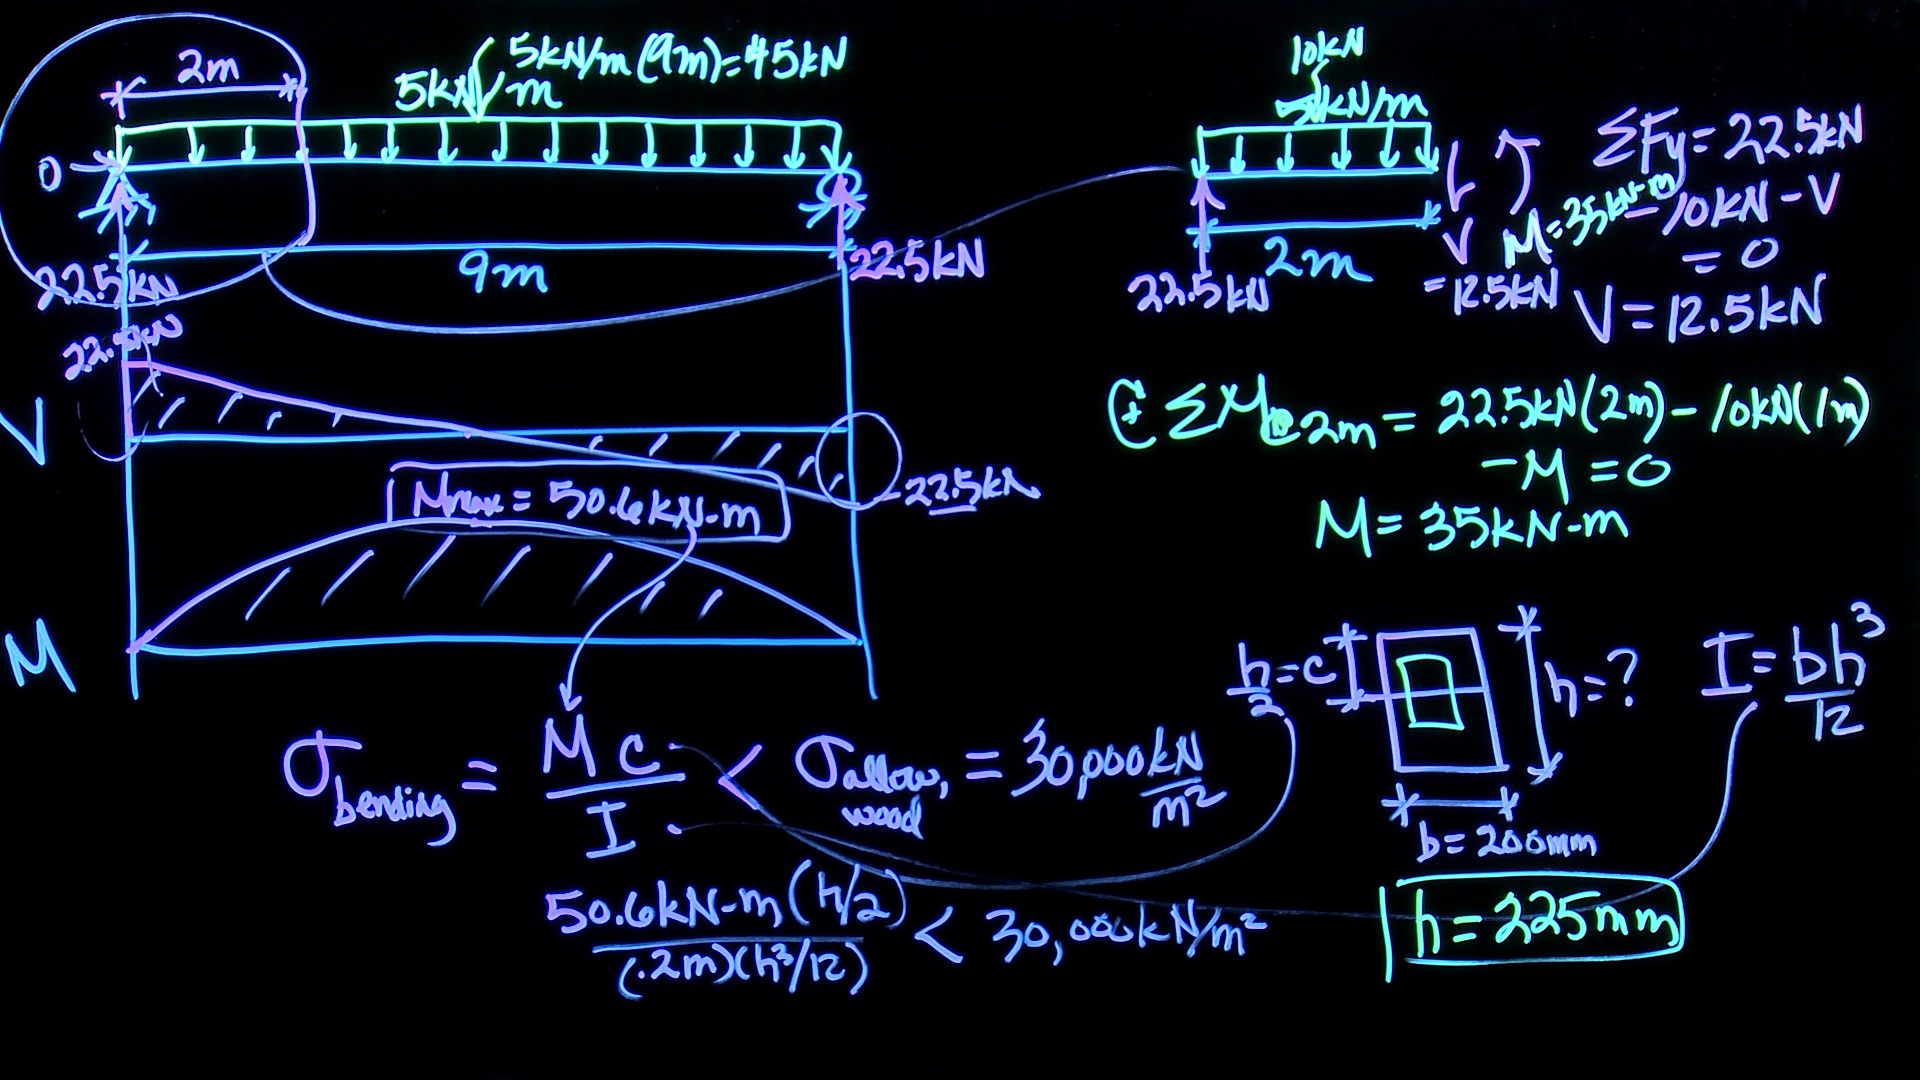 2m
5kN/m(9m)=45kN
5kN/m
0
22.5kN
9m
22.5kN
22.5kN
V
-22.5kN
Mmax = 50.6kN-m
M
10kN
5kN/m
22.5kN
2m
V
= 12.5kN
M=35kN-m
ΣFy= 22.5kN
-10kN - V
= 0
V= 12.5kN
+ ΣM@2m = 22.5kN(2m) - 10kN(1m)
-M = 0
M= 35kN-m
h/2 = c
h=?
b= 200mm
I= bh³/12
σbending = Mc/I < σallow, wood = 30,000kN/m²
50.6kN-m(h/2)/(.2m)(h³/12) < 30,000kN/m²
h= 225mm